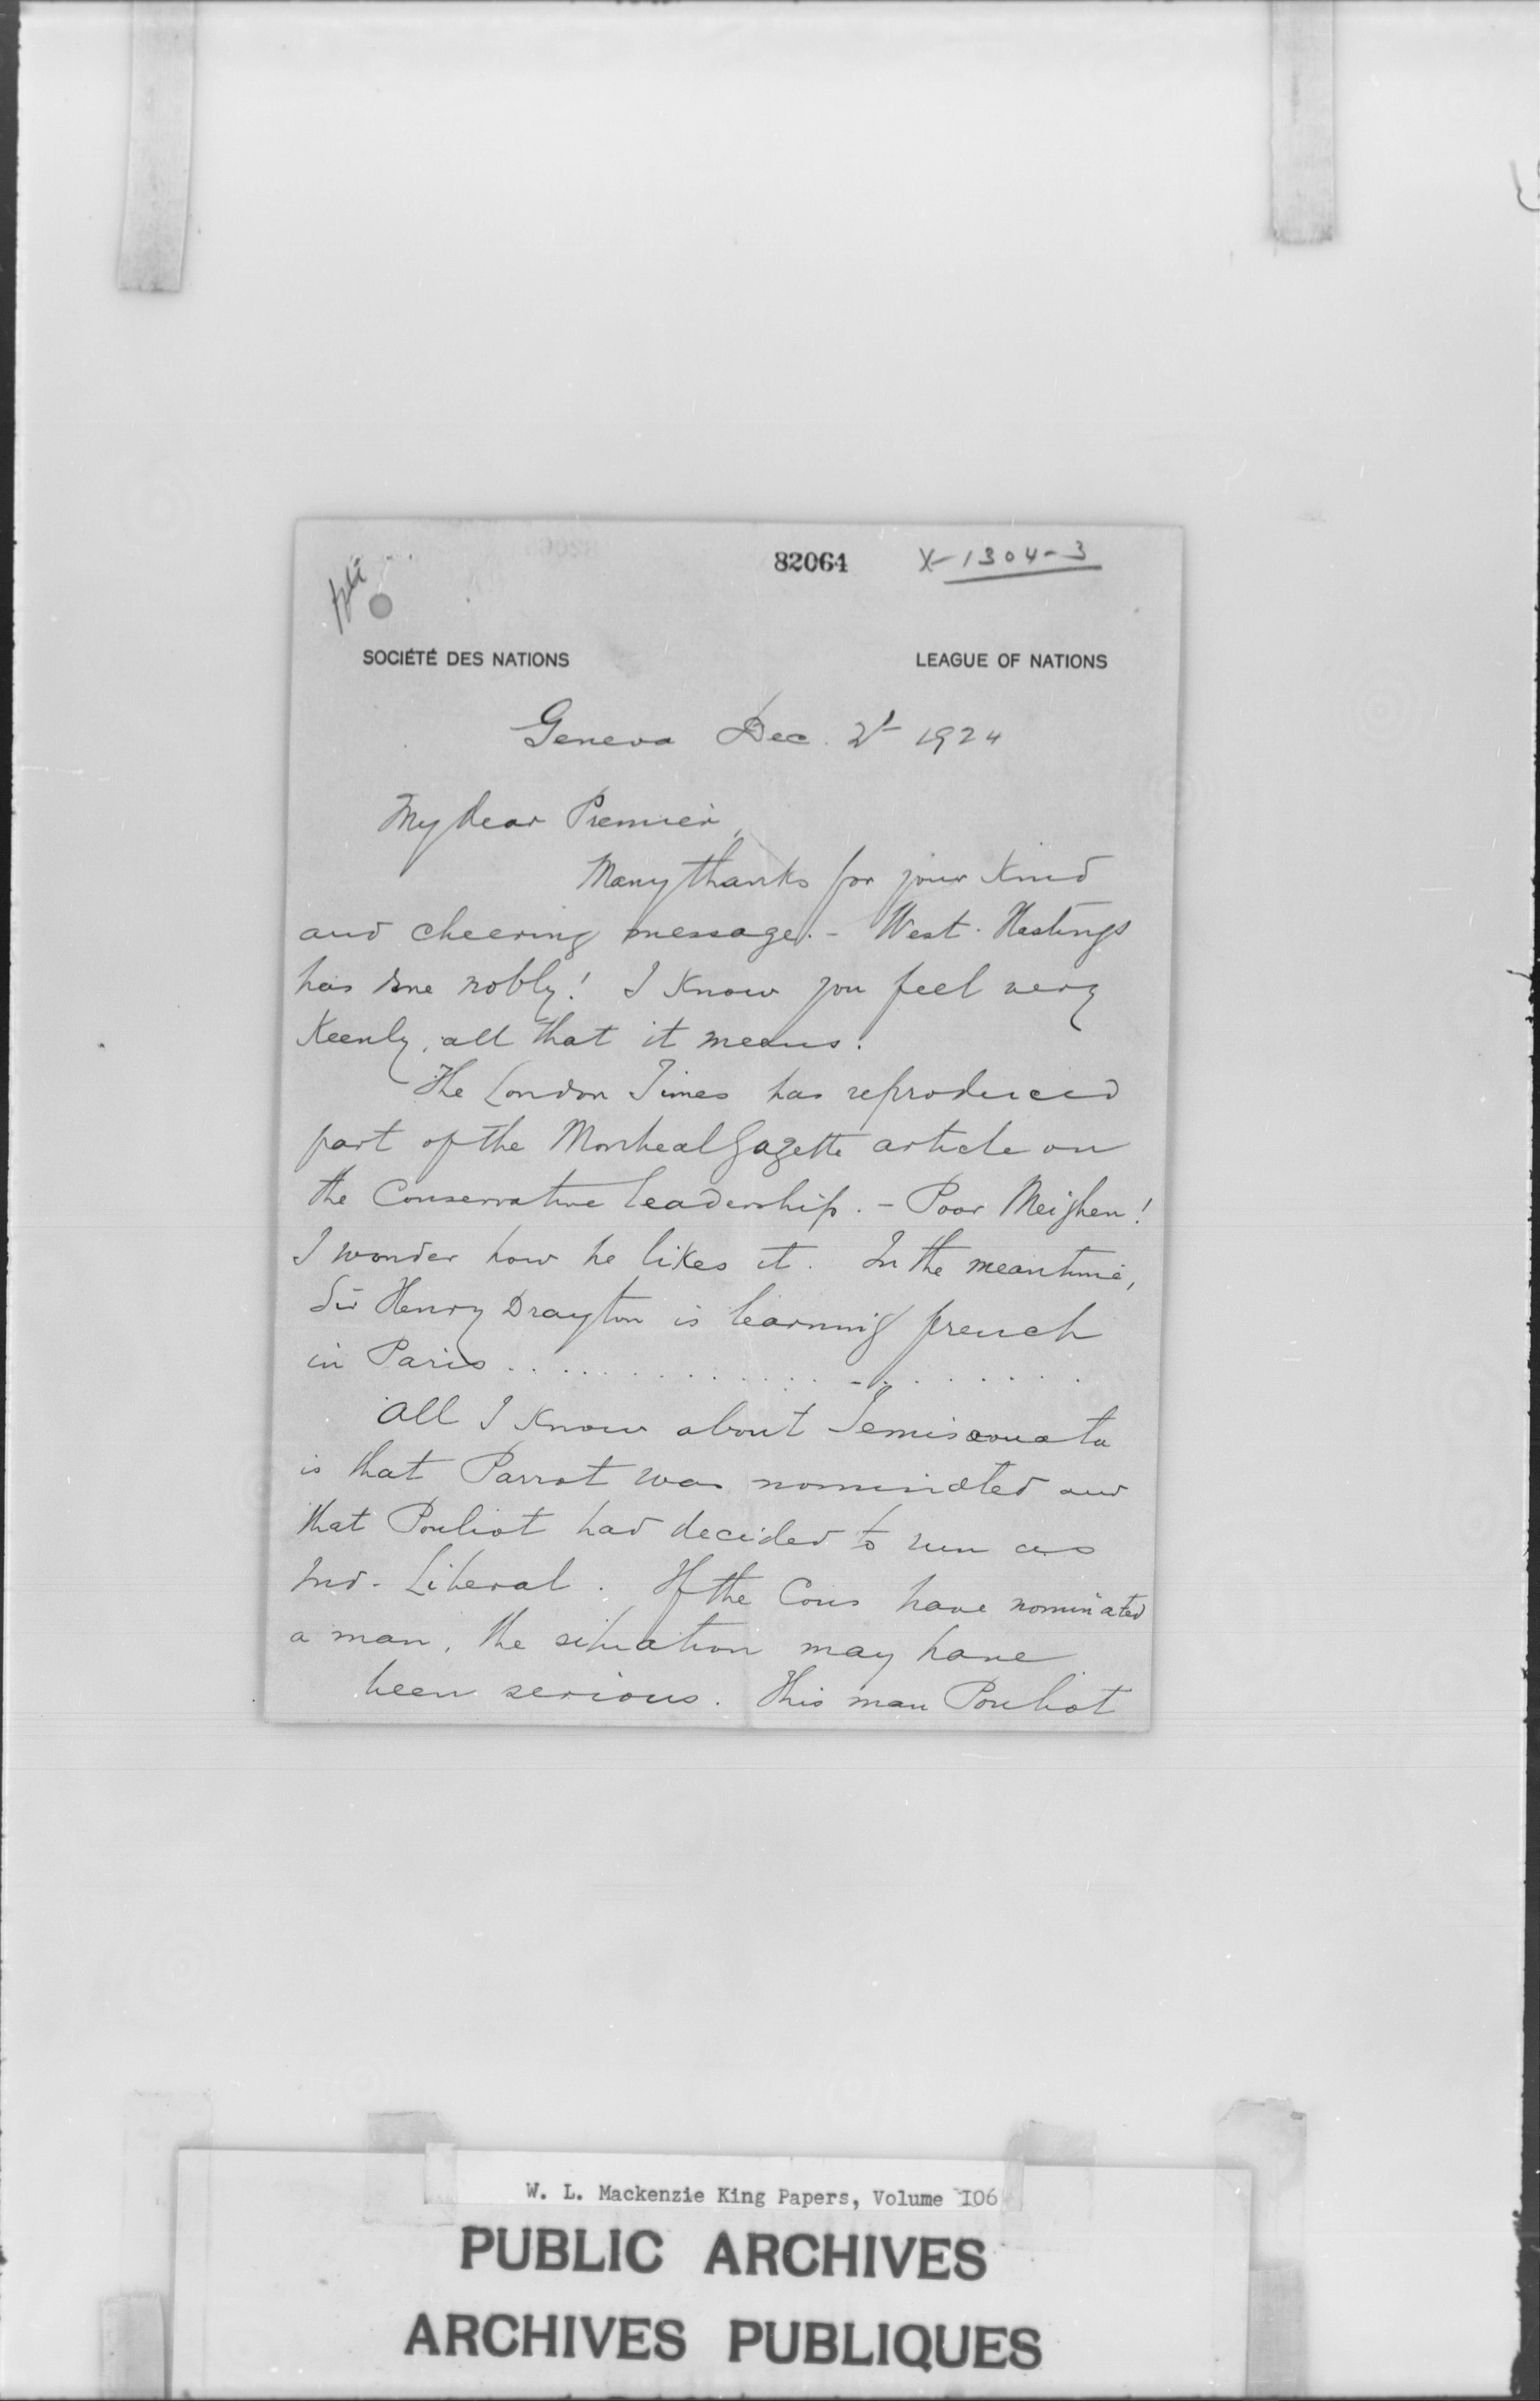 82064 X-1304-3
SOCIÉTÉ DES NATIONS LEAGUE OF NATIONS
Geneva Dec. 2d 1924
My dear Premier,
Many thanks for your kind
and cheering message. - West. Hastings
has done nobly! I know you feel very
keenly, all that it means.
The London Times has reproduced
part of the Montreal Gazette article on
the Conservative leadership. - Poor Meighen!
I wonder how he likes it. In the meantime,
Sir Henry Drayton is learning french
in Paris . . . . . . . . . . . . . - . . . . . . .
All I know about Temiscouata
is that Parrot was nominated and
that Pouliot had decided to run as
Ind. Liberal. If the Cons have nominated
a man, the situation may have
been serious. This man Pouliot
W. L. Mackenzie King Papers, Volume 106
PUBLIC ARCHIVES
ARCHIVES PUBLIQUES